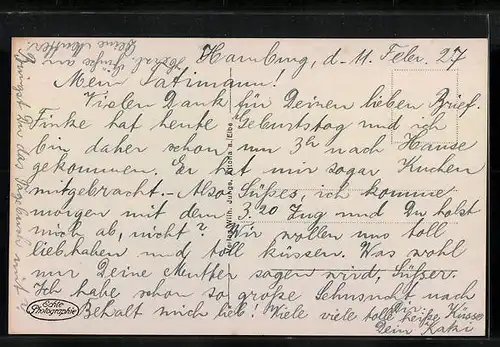 Hamburg, d. 11. Febr. 27
Mein Tatimann!
Vielen Dank für Deinen lieben Brief.
Finke hat heute Geburtstag und ich
bin daher schon um 3h nach Hause
gekommen. Er hat mir sogar Kuchen
mitgebracht. - Also Süßes, ich komme
morgen mit dem 3.20 Zug und Du holst
mich ab, nicht? Wir wollen uns toll
liebhaben und toll küssen. Was wohl
nur Deine Mutter sagen wird, Süßer.
Ich habe schon so große Sehnsucht nach
Dir.
Behalt mich lieb! Viele viele tolle heiße Küsse
Dein Kati
Herzl. Grüße an
Deine Mutter.
Bringst Du das Tagebuch mit?
Verlag Wilh. Junge, Altona a. Elbe
Echte
Photographie